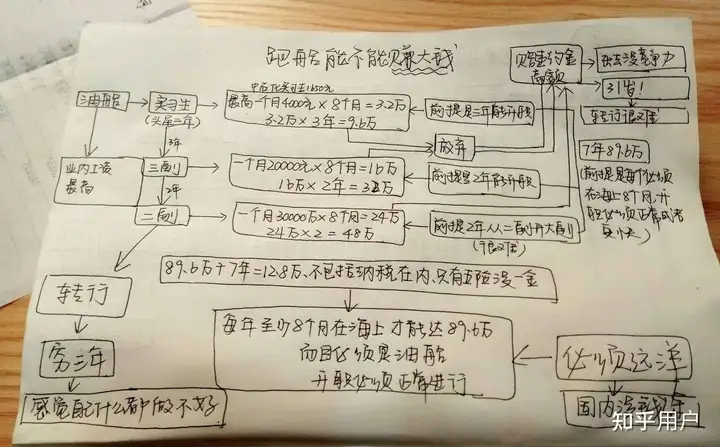 跑船能不能赚大钱
赔违约金
高额
失去竞争力
31岁!
转行很难
油船
实习生
(头尾三年)
中石化实习生1650元
最高一个月4000元×8个月=3.2万
3.2万×3年=9.6万
前提是三年能升职
放弃
3年
业内工资
最高
三副
一个月20000元×8个月=16万
16万×2年=32万
前提是2年能升职
7年89.6万
前提是每年必须
在海上8个月,升
职必须正常或者
更快
2年
二副
一个月30000万×8个月=24万
24万×2=48万
前提是2年从二副升大副
(很难)
89.6万÷7年=12.8万、不包括纳税在内、只有五险没一金
转行
每年至少8个月在海上才能达89.6万
而且必须是油船
升职必须正常进行
必须远洋
穷三年
国内没钱
感觉自己什么都做不好
知乎用户